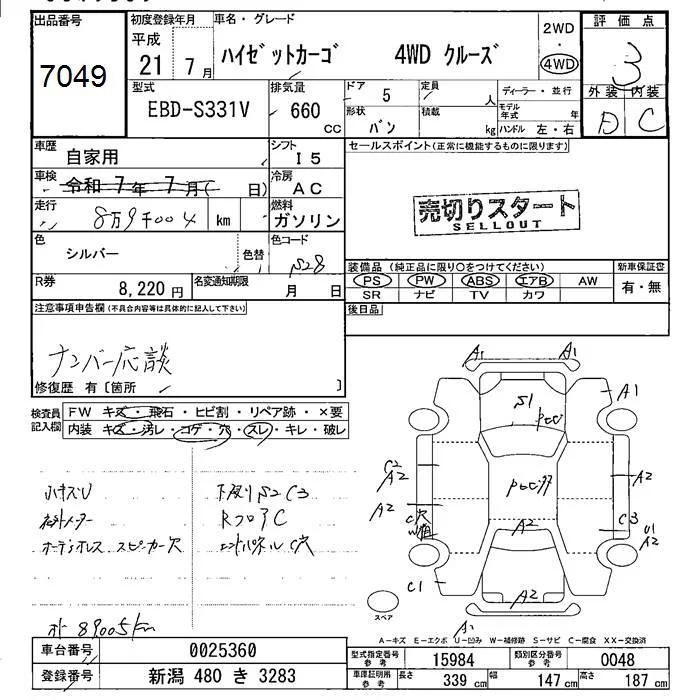 出品番号
7049
初度登録年月
平成
21年 7月
車名・グレード
ハイゼットカーゴ 4WD クルーズ
2WD
4WD
評価点
3
外装 内装
D C
型式
EBD-S331V
排気量
660 CC
ドア 5
定員 人
ディーラー・並行
形状 バン
積載 kg
モデル年式 年
ハンドル 左・右
車歴 自家用
シフト I5
セールスポイント(正常に機能するものに限ります)
車検 令和7年7月( 日)
冷房 AC
走行 8万9千004 km
燃料 ガソリン
売切りスタート
SELLOUT
色 シルバー
色替
色コード S28
装備品 (純正品に限り○をつけてください)
新車保証書
PS PW ABS エアB AW
有・無
SR ナビ TV カワ
R券 8,220円
名変通知期限 月 日
後日品
注意事項申告欄(不具合内容等は具体的に記入して下さい)
ナンバー応談
修復歴 有〔箇所 〕
検査員記入欄
FW キズ・飛石・ヒビ割・リペア跡・×要
内装 キズ・汚レ・コゲ・穴・スレ・キレ・破レ
小キズU
下廻りS2C3
社外メーター
RフロアC
オーディオレス スピーカー穴
エンドパネルC穴
オ 89005km
A1 A1
S1
A1
C2
A2
A2
A2
C穴
C3
U1
A2
A2
C1
A2
A1
スペア
A-キズ E-エクボ U-凹み W-補修跡 S-サビ C-腐食 XX-交換済
車台番号 0025360
登録番号 新潟 480 き 3283
型式指定番号 参考 15984
類別区分番号 参考 0048
車庫証明所 参考 長さ 339 cm 幅 147 cm 高さ 187 cm